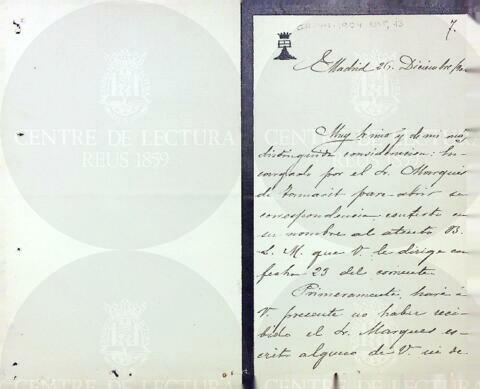 CENTRE DE LECTURA
REUS 1859
7.
Madrid 26 Diciembre
Muy Sr mio y de mi más
distinguida consideracion: En-
cargado por el Sr. Marques
de Tamarit para abrir su
correspondencia, contesto en
su nombre al atento B.
L. M. que V. le dirige con
fecha 23 del corriente.
Primeramente, haré á
V. presente no haber reci-
bido el Sr. Marques es-
crito alguno de V. ni de
CENTRE DE LECTURA